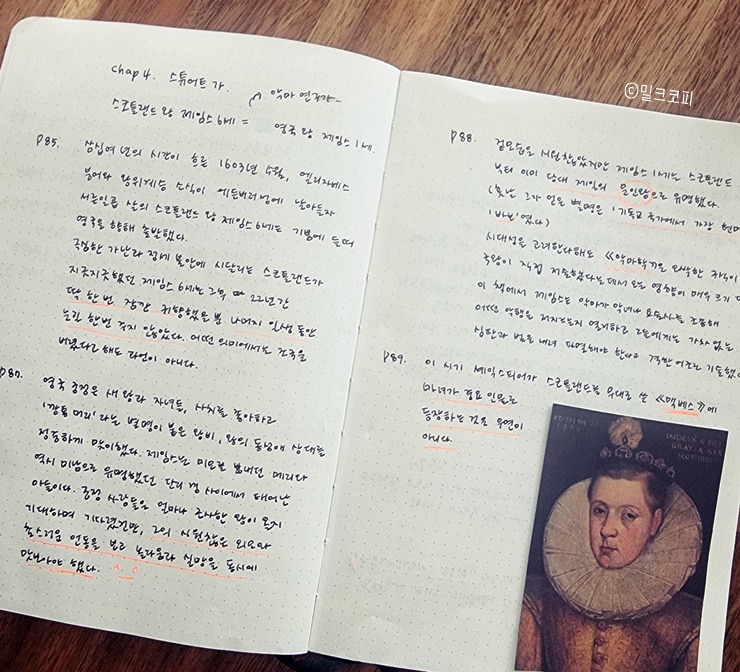 chap 4. 스튜어트 가.
악마 연구가
스코틀랜드 왕 제임스 6세 = 영국 왕 제임스 1세.
p85. 삼십여 년의 시간이 흐른 1603년 4월, 엘리자베스
붕어와 왕위계승 소식이 에든버러성에 날아들자
서른일곱 살의 스코틀랜드 왕 제임스 6세는 기쁨에 들떠
영국을 향해 출발했다.
극심한 가난과 정세 불안에 시달리는 스코틀랜드가
지긋지긋했던 제임스 6세는 그후 22년간
딱 한 번 잠깐 귀향했을 뿐 나머지 인생 동안
눈길 한번 주지 않았다. 어떤 의미에서는 조국을
버렸다고 해도 과언이 아니다.
p87. 영국 궁정은 새 왕과 자녀들, 사치를 좋아하고
'깡통 머리'라는 별명이 붙은 왕비, 왕의 동성애 상대를
정중하게 맞이했다. 제임스는 미모를 뽐내던 메리와
역시 미남으로 유명했던 단리 경 사이에서 태어난
아들이다. 궁정 사람들은 얼마나 근사한 왕이 올지
기대하며 기다렸건만, 그의 시원찮은 외모와
촌스러운 언동을 보고 놀라움과 실망을 동시에
맛보아야 했다. ^^
ⓒ밀크코피
p88. 겉모습은 시원찮았지만 제임스 1세는 스코틀랜드
부터 이미 당대 제일의 문인왕으로 유명했다.
(훗날 그가 얻은 별명은 '기독교 국가에서 가장 현명
'바보'였다)
시대성을 고려한다해도 《악마학》을 오싹한 저작이
국왕이 직접 저술했다는데서 오는 영향이 매우 크기
이 책에서 제임스는 악마가 악녀나 요술사를 조종해
어떤 악행을 저지르는지 열거하고 그들에게는 가차 없는
심판과 벌을 내려 파멸해야 한다고 격한 어조로 기술했
p89. 이 시기 셰익스피어가 스코틀랜드를 무대로 쓴 《맥베스》에
마녀가 중요 인물로
등장하는 것은 우연이
아니다.
IACOBVS 6 DEI
GRATIA REX
SCOTORVM